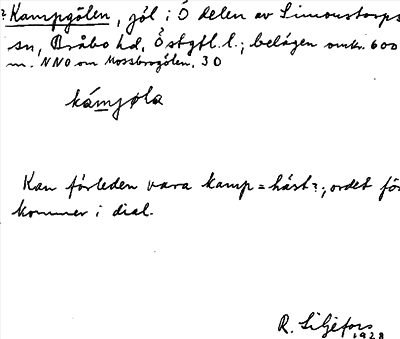 ? Kampgölen, göl i Ö delen av Simonstorps
sn, Bråbo hd, Östgtl. l.; belägen omkr. 600
m. NNO om Mossbrogölen. 30
kámjøla
Kan förleden vara kamp = häst?; ordet före
kommer i dial.
R. Liljefors
1928